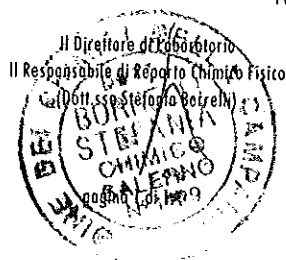 Il Direttore di Laboratorio
Il Responsabile di Reparto Chimico Fisico
(Dott.ssa Stefania Borrelli)
BORRELLI
STEFANIA
CHIMICO
SALERNO
pagina 1 di
CAMPAN